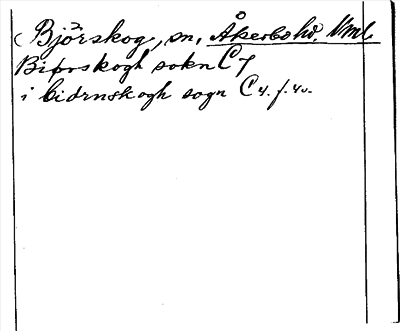 Björskog, sn, Åkerbo hd. Vml.
Biþrskogh sokn C 7
i bidrnskogh sogn C 4. f. 40.